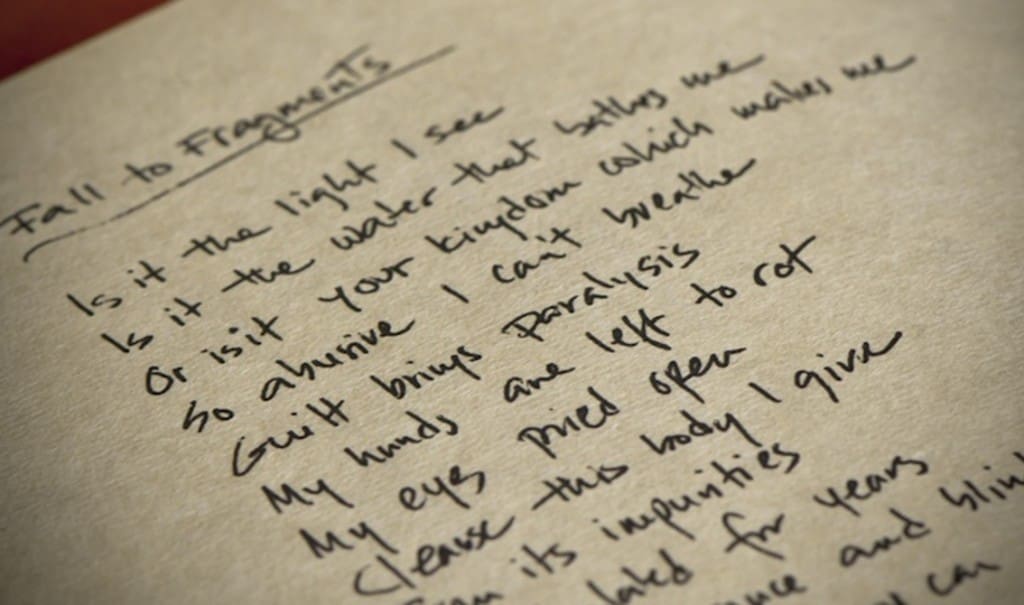 Fall to Fragments
Is it the light I see
Is it the water that bathes me
Or is it your kingdom which makes me
So abusive I can't breathe
Guilt brings paralysis
My hands are left to rot
My eyes pried open
Cleanse this body I give
its impurities
for years
and
can